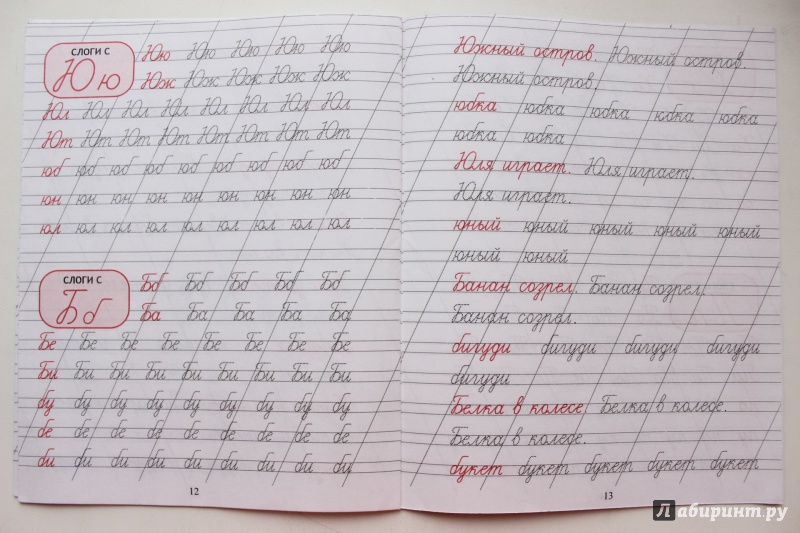 СЛОГИ С
Ю ю
Юю Юю Юю Юю Юю
Юж Юж Юж Юж Юж
Юл Юл Юл Юл Юл Юл Юл Юл
Ют Ют Ют Ют Ют Ют Ют Ют
юб юб юб юб юб юб юб юб
юн юн юн юн юн юн юн юн
юл юл юл юл юл юл юл юл
СЛОГИ С
Б б
Бб Бб Бб Бб Бб
Ба Ба Ба Ба Ба
Бе Бе Бе Бе Бе Бе Бе Бе
Би Би Би Би Би Би Би Би
бу бу бу бу бу бу бу бу
бе бе бе бе бе бе бе бе
би би би би би би би би
12
Южный остров. Южный остров.
Южный остров.
юбка юбка юбка юбка юбка
юбка юбка
Юля играет. Юля играет.
Юля играет.
юный юный юный юный юный
юный юный
Банан созрел. Банан созрел.
Банан созрел.
бигуди бигуди бигуди бигуди
бигуди
Белка в колесе. Белка в колесе.
Белка в колесе.
букет букет букет букет букет
13
Лабиринт.ру